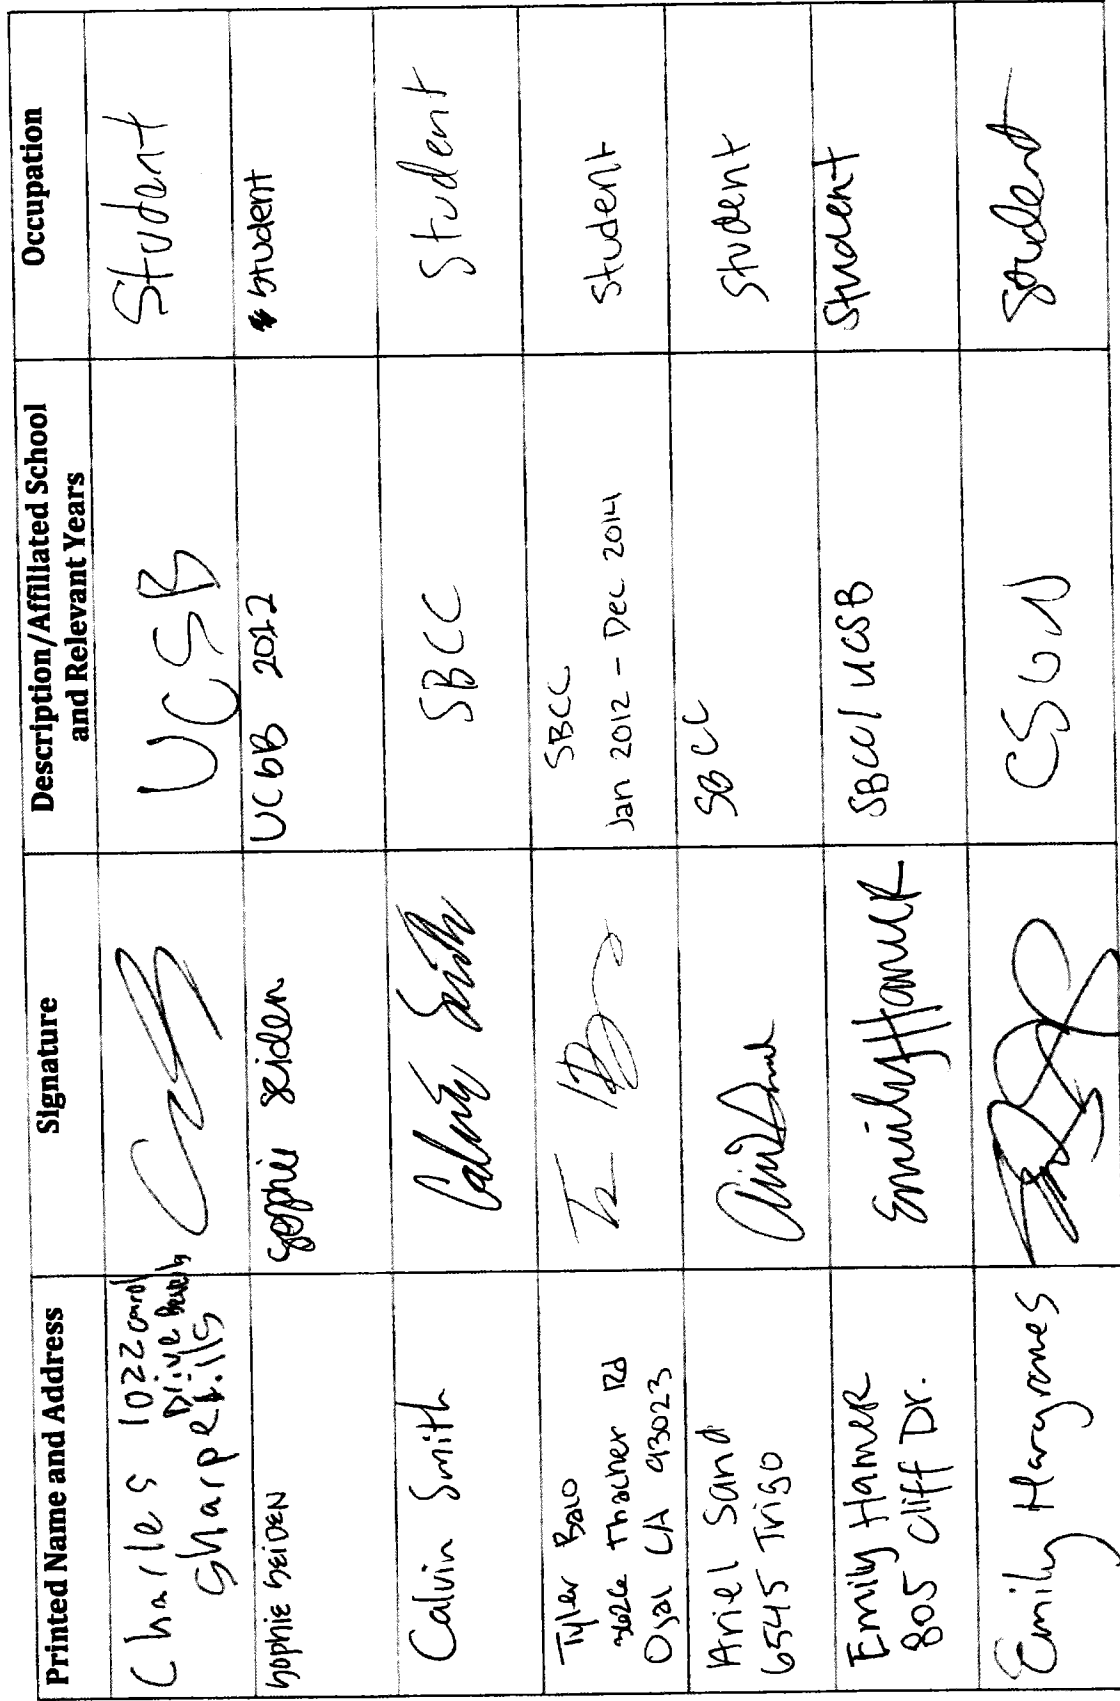 Printed Name and Address
Signature
Description/Affiliated School
and Relevant Years
Occupation
Charles 1022 Carol
Drive Beverly
Sharpe Hills
UCSB
Student
Sophie Seiden
Sophie Seiden
UCSB 2012
Student
Calvin Smith
Calvin Smith
SBCC
Student
Tyler
Thacher Rd
Ojai CA 93023
SBCC
Jan 2012 - Dec 2014
Student
Ariel Sand
6545 Trigo
SBCC
Student
Emily Hamer
805 Cliff Dr.
Emily Hamer
SBCC/UCSB
Student
Emily Hargraves
CSUN
Student